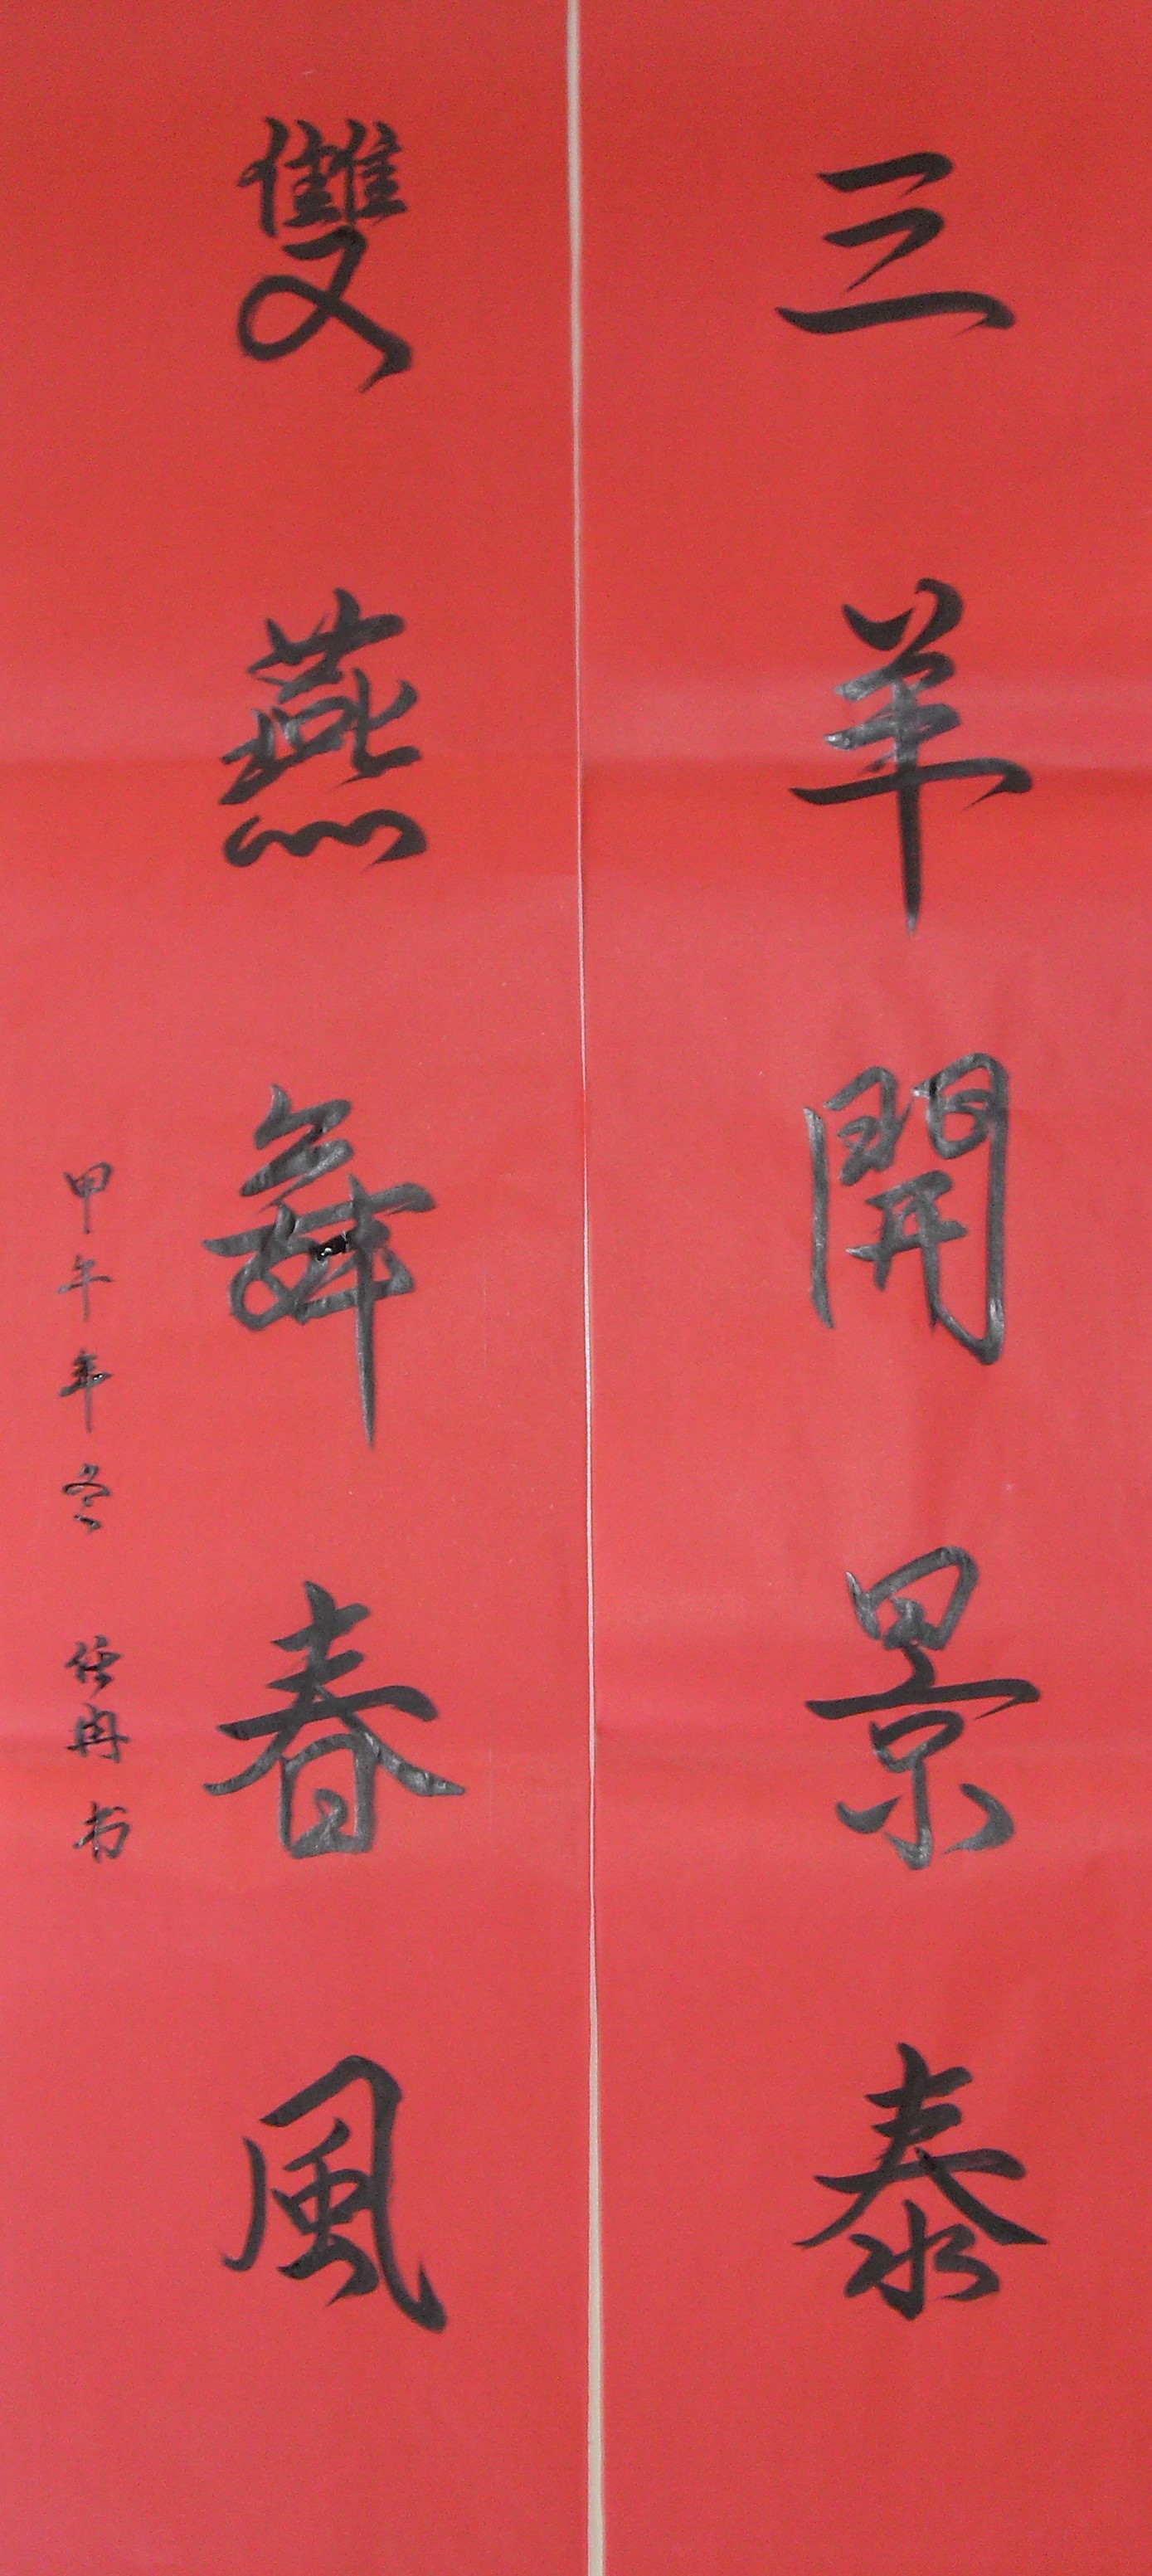 三羊開景泰
雙燕舞春風
甲午年冬 任冉书